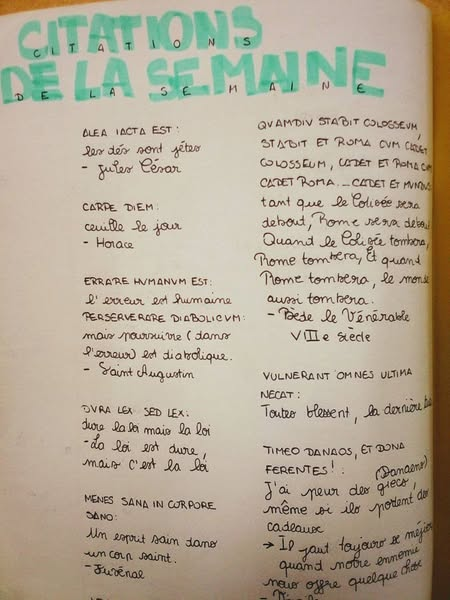 CITATIONS
CITATIONS
DE LA SEMAINE
DE LA SEMAINE
ALEA IACTA EST :
les dés sont jétés
- Jules César
CARPE DIEM :
ceuille le jour
- Horace
ERRARE HVMANVM EST :
l'erreur est humaine
PERSERVERARE DIABOLICVM :
mais poursuivre (dans
l'erreur) est diabolique.
- Saint Augustin
DVRA LEX SED LEX :
dure la loi mais la loi
- La loi est dure,
mais c'est la loi
MENES SANA IN CORPORE
SANO :
Un esprit sain dans
un corp saint.
- Juvénal
QVAMDIV STABIT COLOSSEVM,
STABIT ET ROMA CVM CADET
COLOSSEUM, CADET ET ROMA CVM
CADET ROMA... CADET ET MVNDVS
tant que le Colisée sera
debout, Rome sera debout
Quand le Colisée tombera,
Rome tombera, Et quand
Rome tombera, le monde
aussi tombera.
- Bède le Vénérable
VIIIe siècle
VULNERANT OMNES ULTIMA
NECAT :
Toutes blessent, la dernière
TIMEO DANAOS, ET DONA
FERENTES ! :
(Danaens)
J'ai peur des grecs,
même si ils portent des
cadeaux
→ Il faut toujours se méfier
quand notre ennemie
nous offre quelque chose